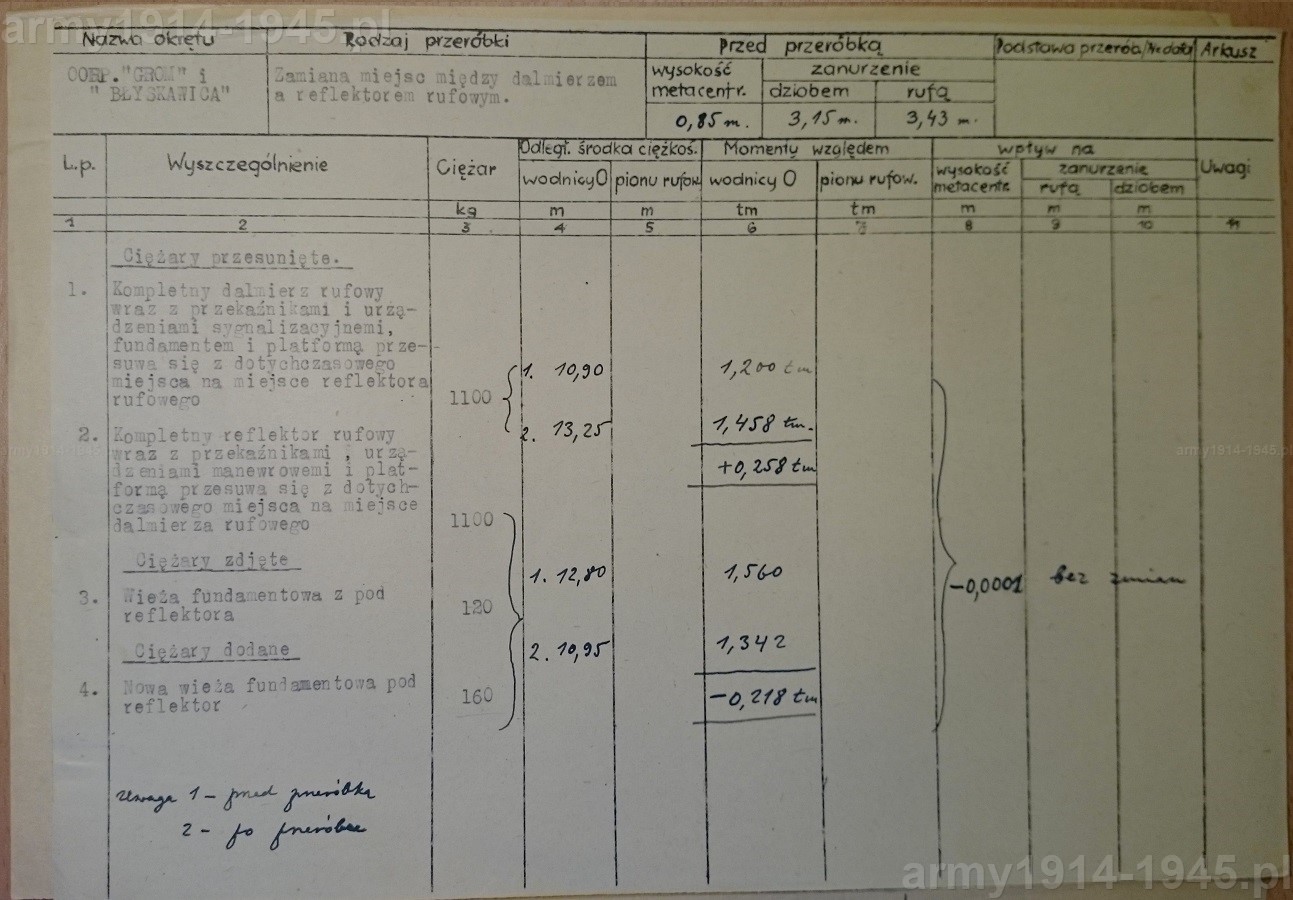 army1914-1945.pl
Nazwa okrętu
Rodzaj przeróbki
Przed przeróbką
Podstawa przerób./Nr.data
Arkusz
OORP."GROM" i
"BŁYSKAWICA"
Zamiana miejsc między dalmierzem
a reflektorem rufowym.
wysokość
metacentr.
zanurzenie
dziobem
rufą
0,85 m.
3,15 m.
3,43 m.
L.p.
Wyszczególnienie
Ciężar
Odległ. środka ciężkoś.
Momenty względem
wpływ na
Uwagi
wodnicy O
pionu rufow.
wodnicy O
pionu rufow.
wysokość
metacentr.
zanurzenie
rufą
dziobem
kg
m
m
tm
tm
m
m
m
1
2
3
4
5
6
7
8
9
10
11
Ciężary przesunięte.
1.
Kompletny dalmierz rufowy
wraz z przekaźnikami i urzą-
dzeniami sygnalizacyjnemi,
fundamentem i platformą prze-
suwa się z dotychczasowego
miejsca na miejsce reflektora
rufowego
1100
1. 10,90
1,200 tm
2. 13,25
1,458 tm.
+0,258 tm
2.
Kompletny reflektor rufowy
wraz z przekaźnikami , urzą-
dzeniami manewrowemi i plat-
formą przesuwa się z dotych-
czasowego miejsca na miejsce
dalmierza rufowego
1100
Ciężary zdjęte
1. 12,80
1,560
-0,0001
bez zmian
3.
Wieża fundamentowa z pod
reflektora
120
Ciężary dodane
2. 10,95
1,342
4.
Nowa wieża fundamentowa pod
reflektor
160
-0,218 tm
Uwaga 1 - przed przeróbką
2 - po przeróbce
army1914-1945.pl
army1914-1945.pl
army1914-1945.pl